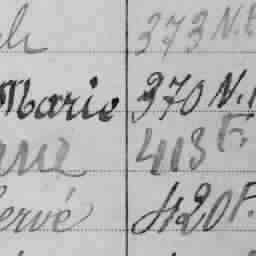 373 N.E
Marie 370 N.
413 F.
ervé 420 F.